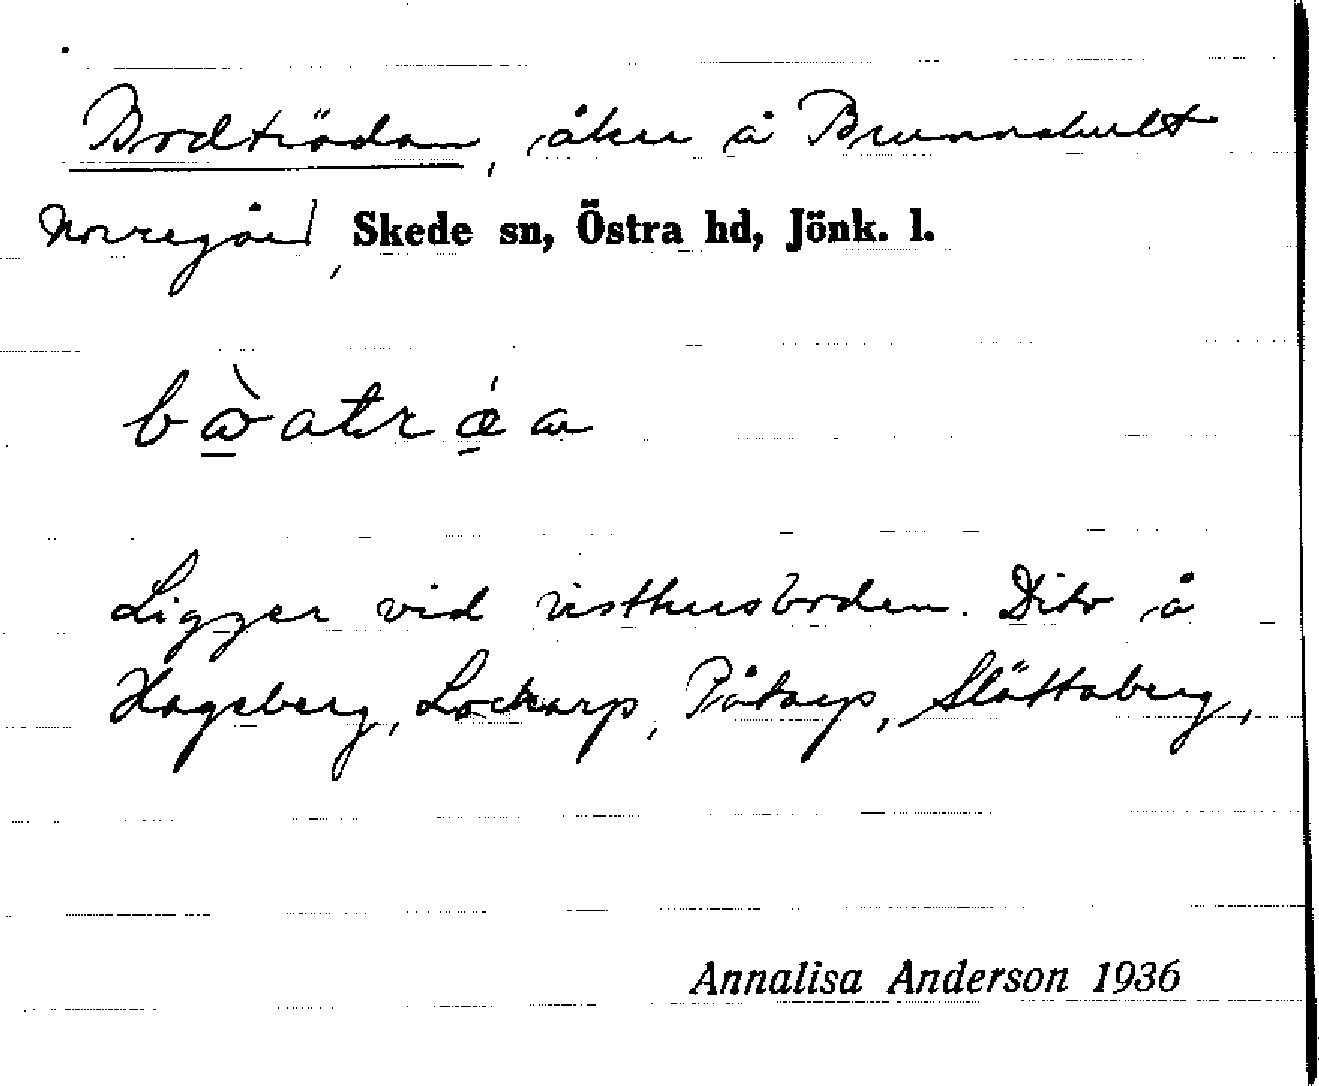 Bodträdan, åker å Brunnshult
Norregård, Skede sn, Östra hd, Jönk. l.
Ligger vid visthusboden. Dito å
Hagsberg, Lockarp, Påtarp, Slättaberg,
Annalisa Anderson 1936